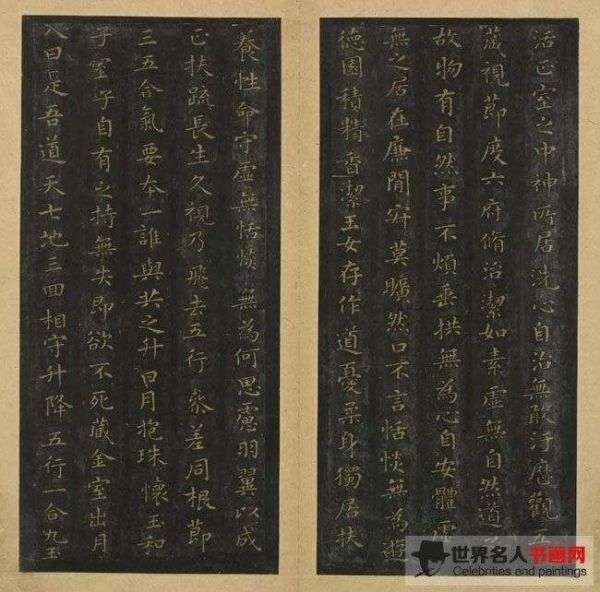 活正室之中神所居洗心自治無敢汙歷觀五
藏視節度六府脩治潔如素虛無自然道之
故物有自然事不煩垂拱無為心自安體虛
無之居在廉間寂莫曠然口不言恬惔無為遊
德園積精香潔玉女存作道憂柔身獨居扶
養性命守虛無恬惔無為何思慮羽翼以成
正扶疏長生久視乃飛去五行參差同根節
三五合氣要本一誰與共之升日月抱珠懷玉和
子室子自有之持無失即欲不死藏金室出月
入日是吾道天七地三回相守升降五行一合九玉
世界名人书画网
Celebrities and paintings